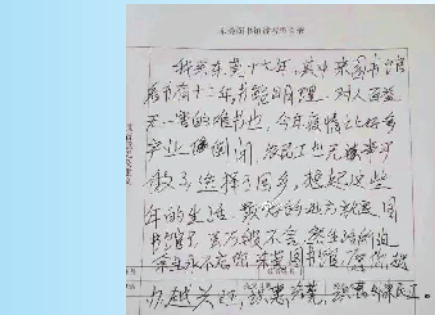 东莞图书馆读者留言表
我来东莞十七年，其中来图书馆
看书有十二年，书能明理，对人百益
无一害的唯书也，今年疫情让好多
产业倒闭，农民工也无事可
做了，选择了回乡，想起这些
年的生活，最好的地方就是图
书馆了，虽万般不舍，然生活所迫
余生永不忘你，东莞图书馆，愿你越
办越兴旺，识惠东莞，识惠外来民工。